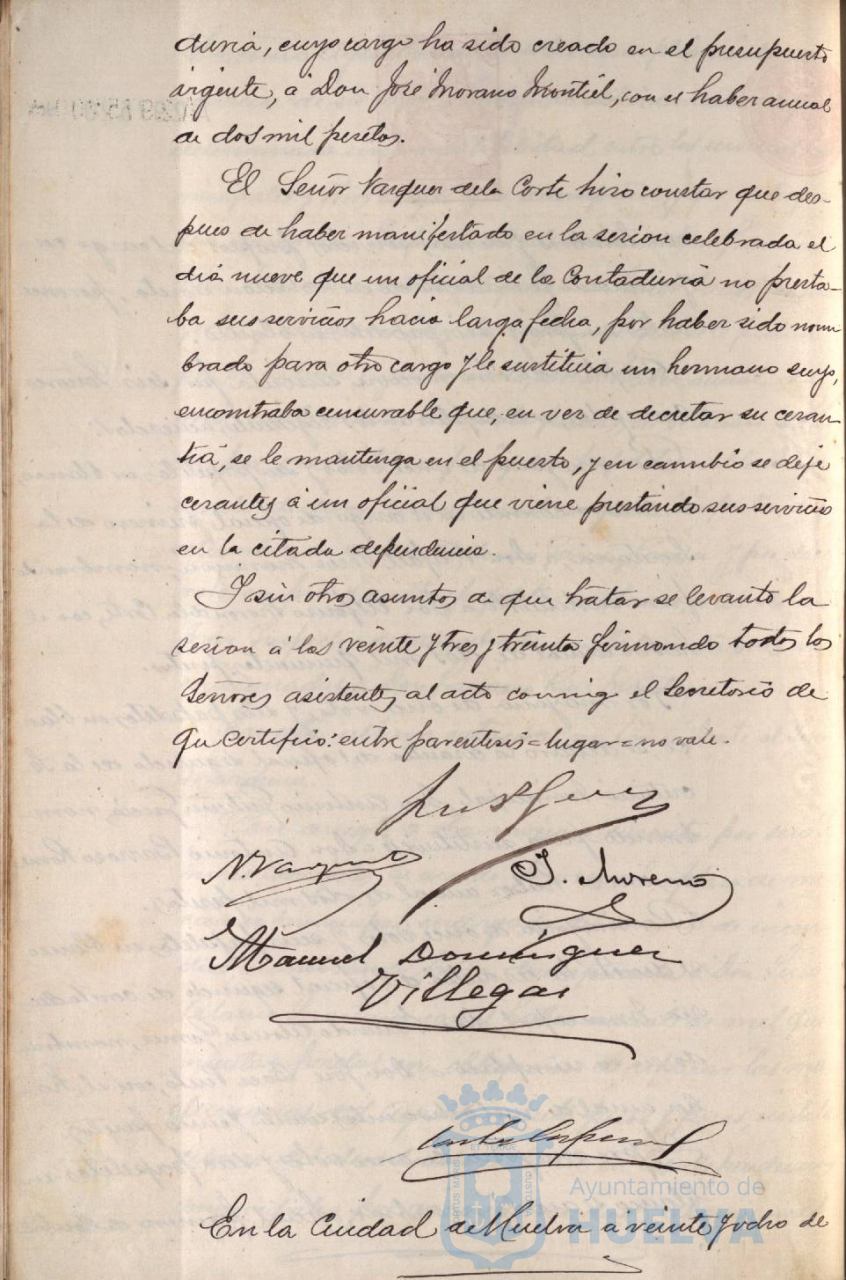 duria, cuyo cargo ha sido creado en el presupuesto
vigente, á Don José Morano Montiel, con el haber anual
de dos mil pesetas.
El Señor Vazquez de la Corte hizo constar que des-
pues de haber manifestado en la sesion celebrada el
dia nueve que un oficial de la Contaduria no presta-
ba sus servicios hacia larga fecha, por haber sido nom-
brado para otro cargo y le sustituia un hermano suyo,
encontraba censurable que, en vez de decretar su cesan-
tia, se le mantenga en el puesto, y en cambio se deje
cesante á un oficial que viene prestando sus servicios
en la citada dependencia.
Y sin otros asuntos de que tratar se levantó la
sesion á las veinte y tres y treinta firmando todos los
Señores asistentes al acto conmigo el Secretario de
que certifico: entre parentesis = lugar = no vale.
N. Vazquez
J. Moreno
Manuel Dominguez
Villegas
Ayuntamiento de
HUELVA
En la Ciudad de Huelva á veinte y ocho de